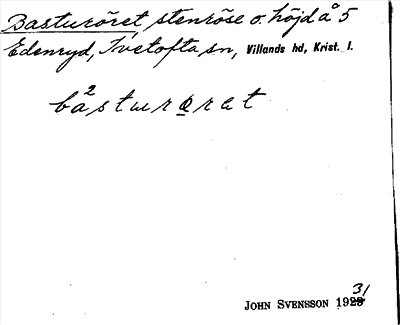 Basturöret, stenröse o. höjd å 5
Edenryd, Ivetofta sn, Villands hd, Krist. l.
ba²sturørat
31
JOHN SVENSSON 1928